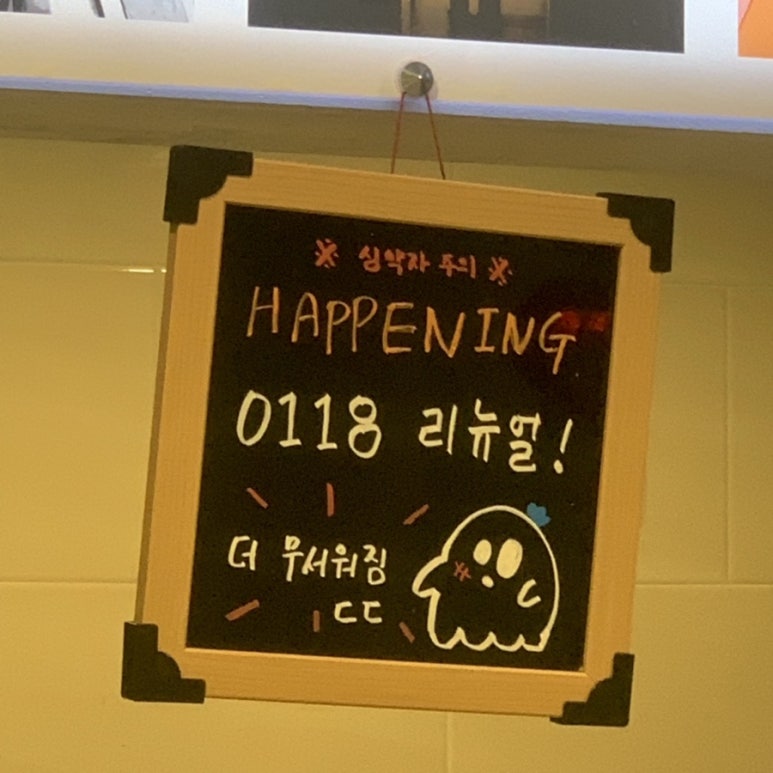 ※ 심약자 주의 ※
HAPPENING
0118 리뉴얼!
더 무서워짐
ㄷㄷ